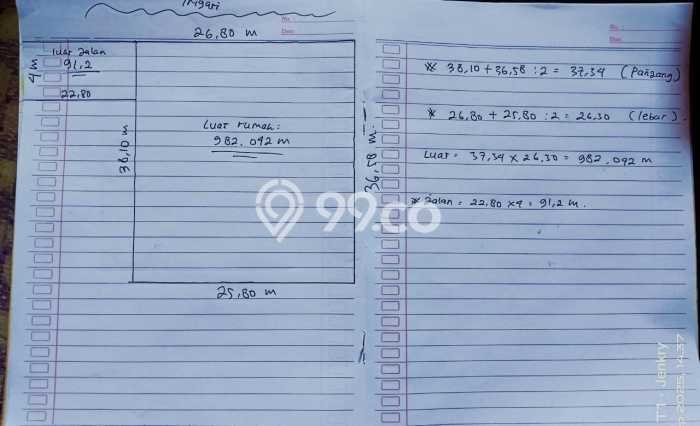 Ingari
26,80 m
No :
Date :
Luar Jalan
91,2
4 m
22,80
38,10 m
Luar rumah :
982.092 m
36,58 m.
25,80 m
No :
Date :
* 38,10 + 36,58 : 2 = 37,34 (Panjang)
* 26,80 + 25,80 : 2 = 26,30 (lebar).
Luar = 37,34 x 26,30 = 982.092 m
* Jalan = 22,80 x 4 = 91,2 m.
99.co
T1 - Jenkry
2025 14:37